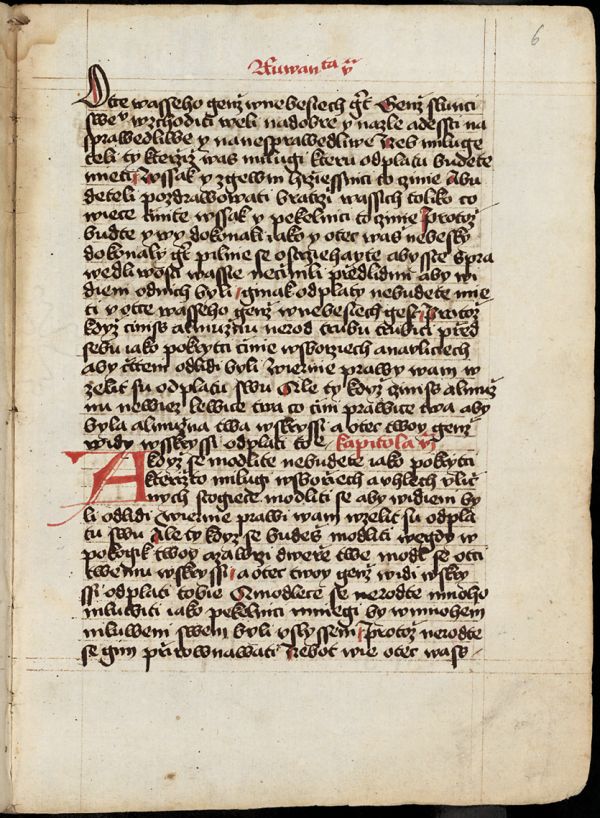 6
Otcie wasseho genz wnebesiech gt Genz slunci
swe v wzchoditi weli nadobre y nazle adesst na
sprawedliwe y nanesprawedliwe Neb miluge
teli ty kteriz was milugi kteru odplatu budete
mieti Wssak y zgewni hrziessnici to cinie Abu
deteli pozdrawowati bratrzi wassich toliko co
wiece cinite wssak y pekelnici to cinie Protoz
budte y wy dokonali iako y otec was nebesky
dokonaly gt pilnie se ostrziehayte abysste spra
wedlnosti wassie necinili przedlidmi aby wi
dieni odnich byli ginak odplaty nebudete mie
ti v otce wasseho genz wnebesiech gest Protoz
kdyz ciniss almuznu nerod trubu trubiti przed
sebu iako pokrytci cinie wsborziech anavliciech
aby cteni odlidi byli Wiernie prawy wam w
zelit su odplatu swu Ale ty kdyz cziniss almuz
nu newiez lewice twa co cini prawice twa aby
byla almuzna twa wskryssi a otec twoy genz
widy wsskryssi odplati to e kapitola vi
A kdyz se modlite nebudete iako pokrytci
kterzizto milugi wsborziech a vhlech vlic
nych stogiece modliti se aby widieni by
li odlidi Wiernie prawi wam wzelit su odpla
tu swu Ale ty kdyz se budess modliti wegdy w
pokogik twoy azawrzi dwerze twe modl se otci
twemu wskryssi a otec twoy genz widi wskry
ssi odplati tobie A modlece se nerodte mnoho
mluwiti iako pekelnici mniegi by wmnohem
mluweni swem byli vslysseni Protoz nerodte
se gim przirownawati Nebot wie otec wass